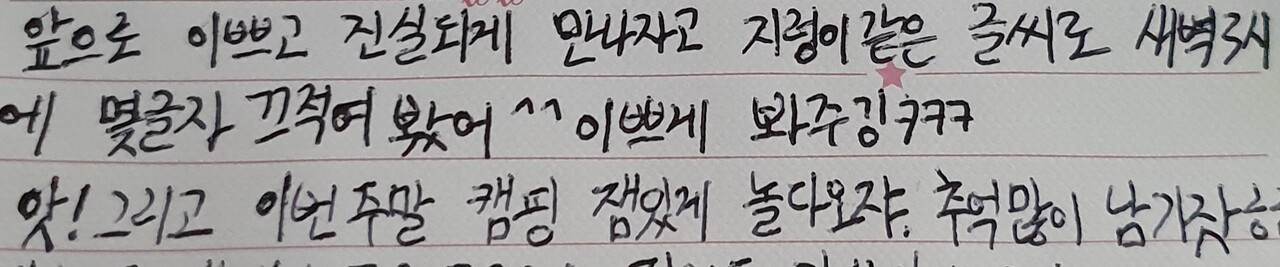 앞으로 이쁘고 진실되게 만나자고 지렁이같은 글씨로 새벽3시
에 몇글자 끄적여 봤어^^ 이쁘게 봐주깅ㅋㅋㅋ
앗! 그리고 이번주말 캠핑 잼있게 놀다오쟈. 추억많이 남기쟈